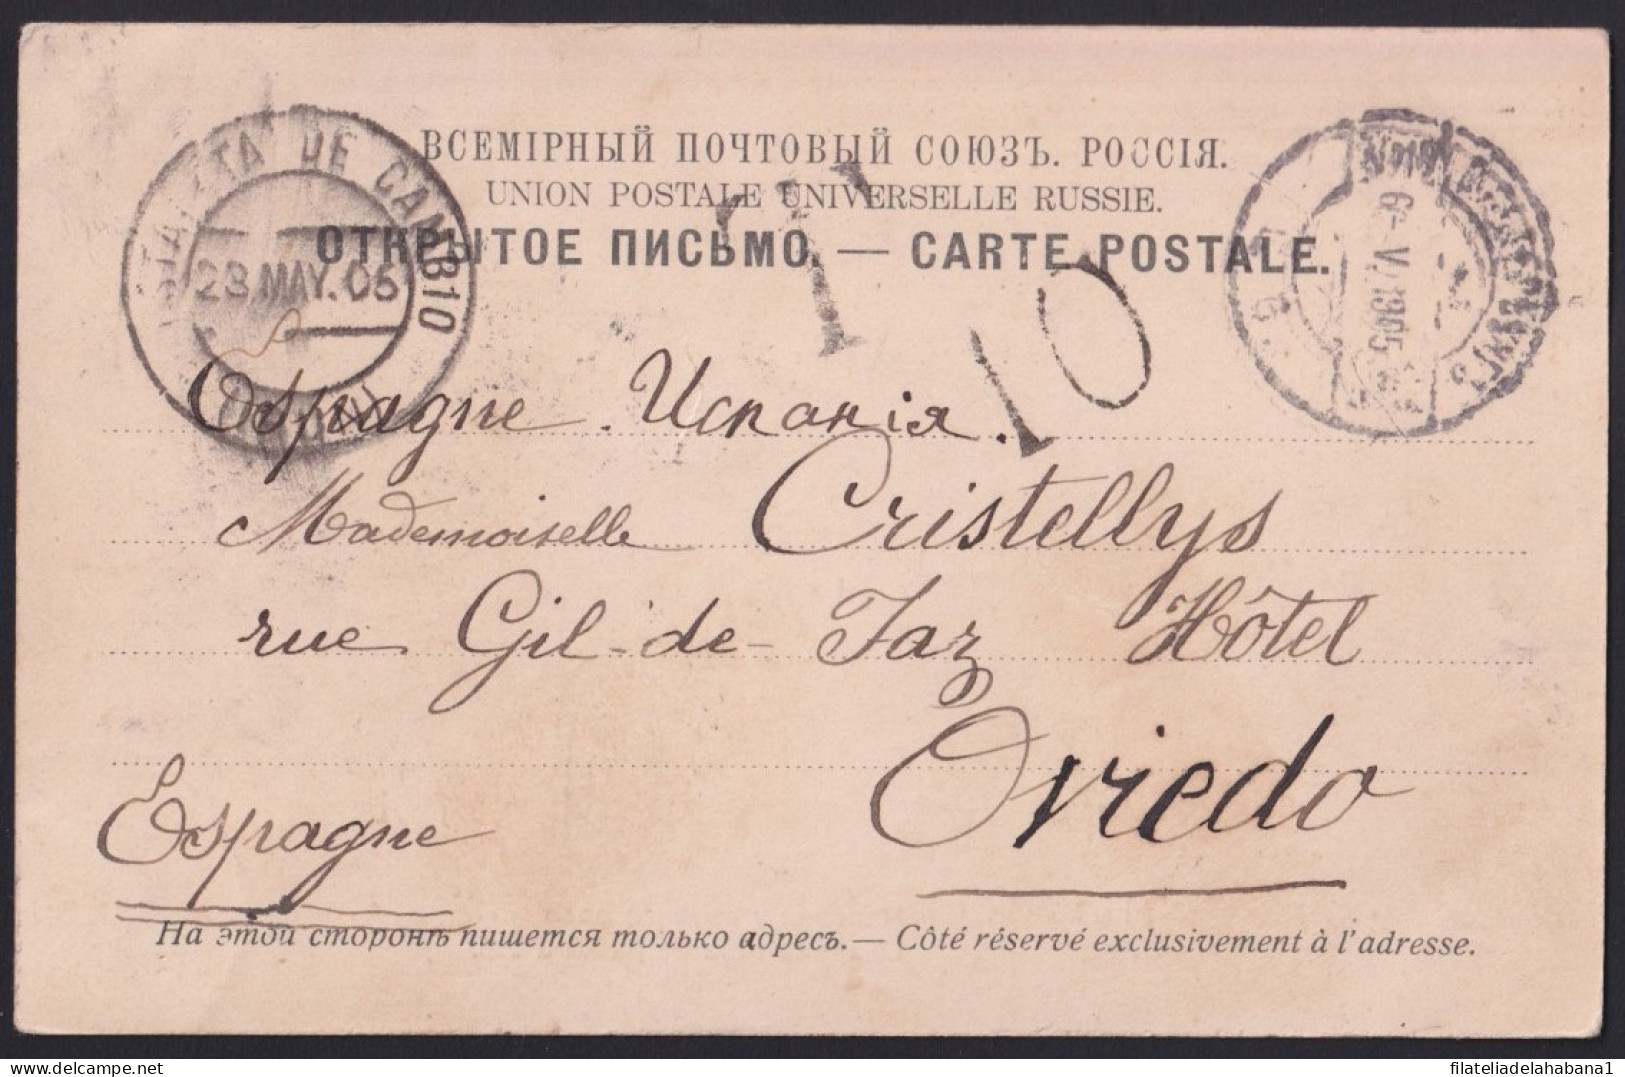 ВСЕМІРНЫЙ ПОЧТОВЫЙ СОЮЗЪ. РОССІЯ.
UNION POSTALE UNIVERSELLE RUSSIE.
ОТКРЫТОЕ ПИСЬМО. — CARTE POSTALE.
ESTAFETA DE CAMBIO
28 MAY. 05
6 V 1905
T
10
Espagne. Испанія.
Mademoiselle Cristellys
rue Gil-de-Jaz Hôtel
Oviedo
Espagne
На этой сторонѣ пишется только адресъ. — Côté réservé exclusivement à l'adresse.
filateliadelahabana1